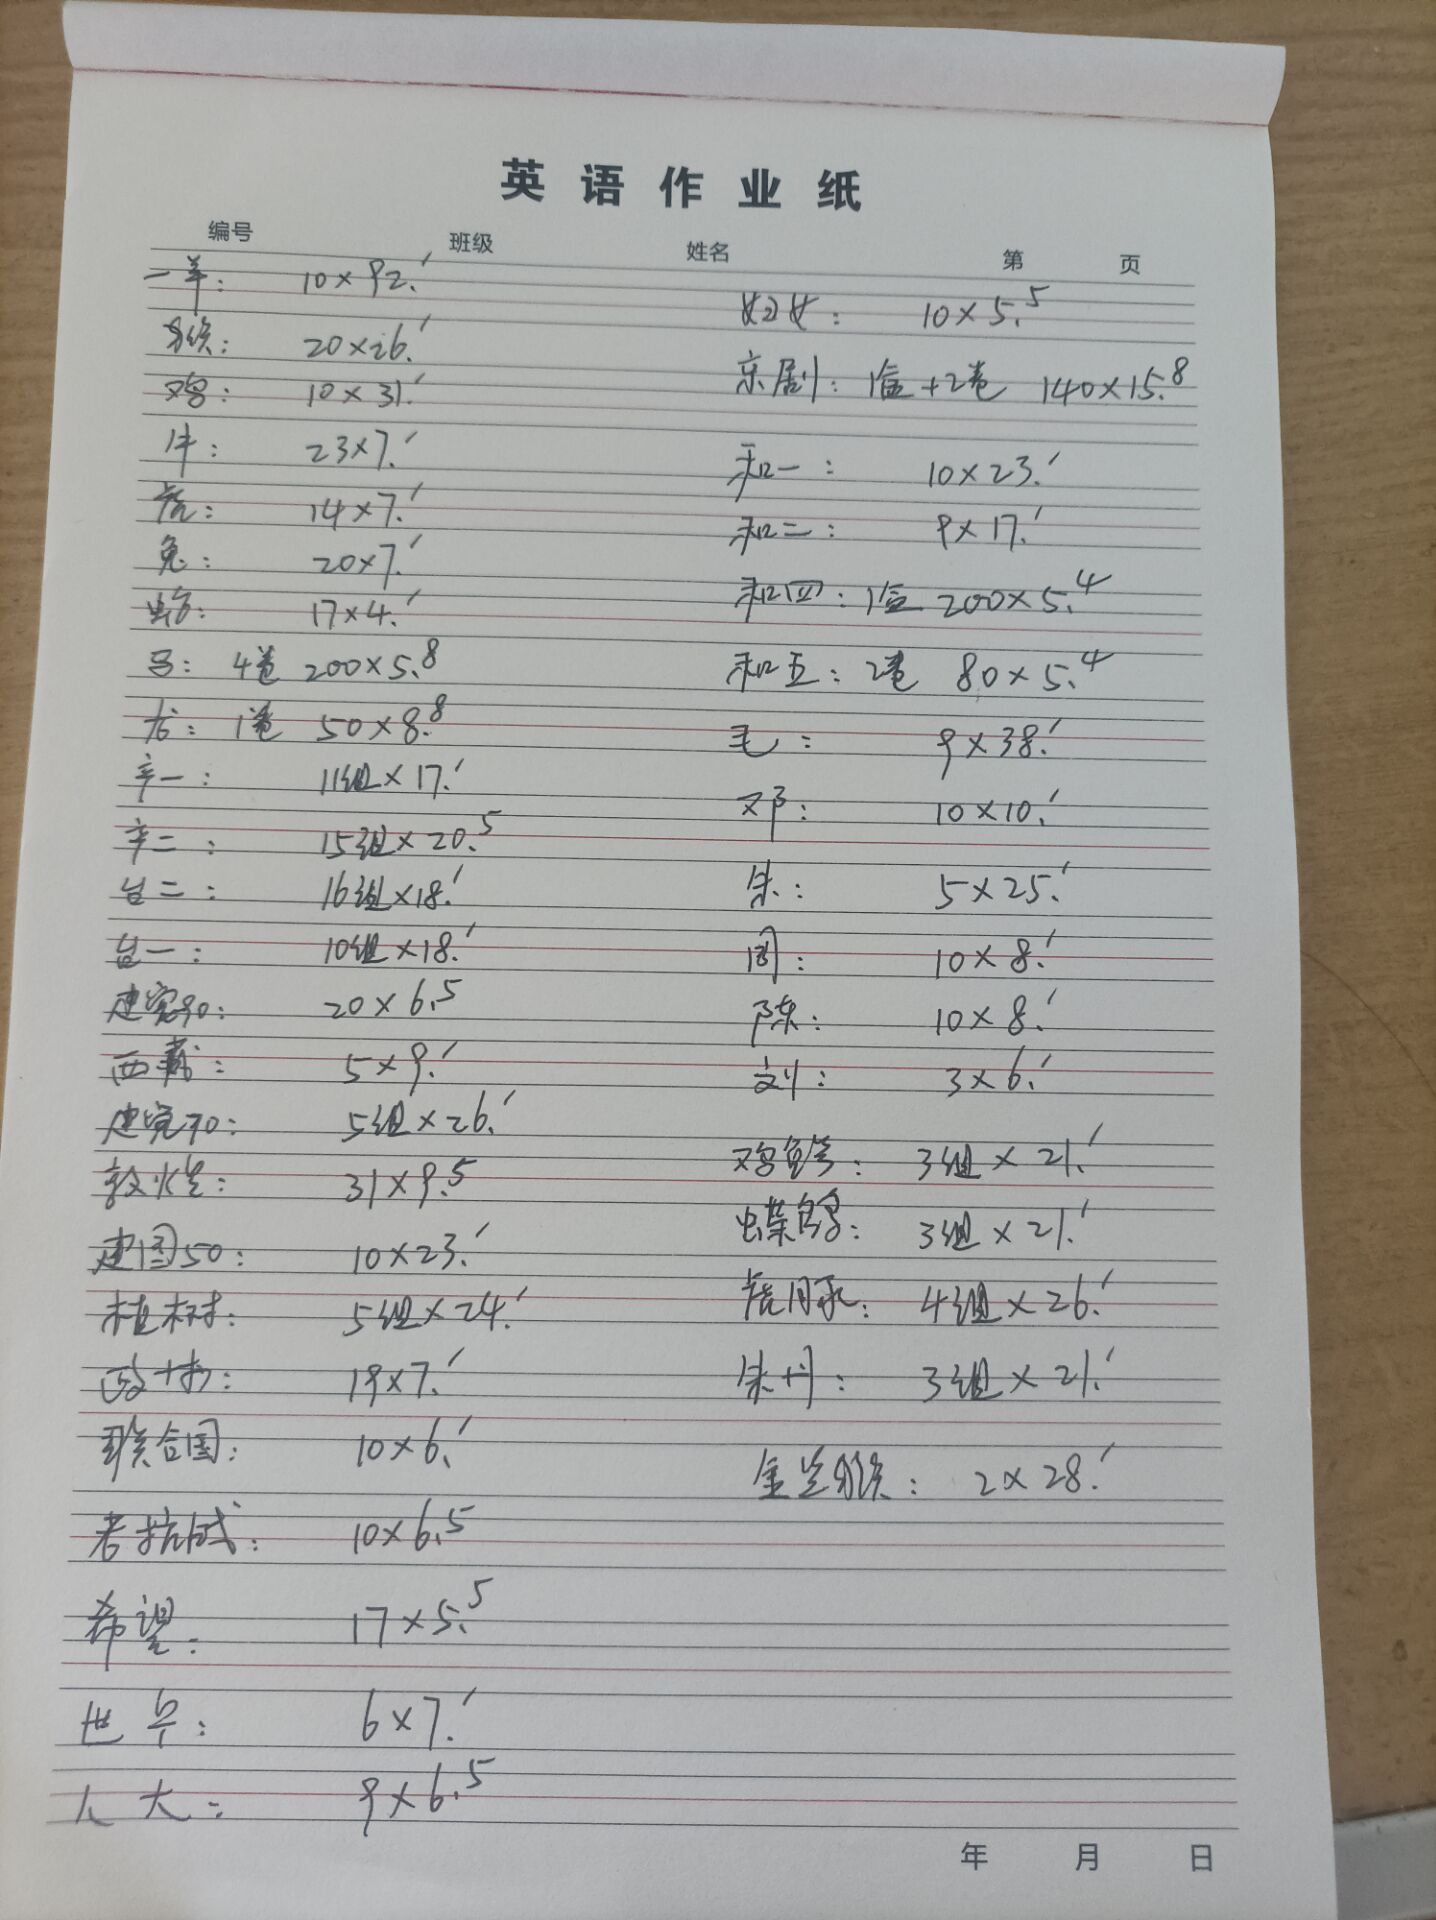 英语作业纸
编号 班级 姓名 第 页
二羊: 10×92.
猴: 20×26.
鸡: 10×31.
牛: 23×7.
虎: 14×7.
兔: 20×7.
蛇: 17×4.
马: 4卷 200×5.8
龙: 1卷 50×8.8
辛一: 11组×17.
辛二: 15组×20.5
台二: 16组×18.
台一: 10组×18.
建党90: 20×6.5
西藏: 5×9.
建党70: 5组×26.
敦煌: 31×9.5
建国50: 10×23.
植树: 5组×24.
政协: 19×7.
联合国: 10×6.
老抗战: 10×6.5
希望: 17×5.5
世军: 6×7.
人大: 9×6.5
妇女: 10×5.5
京剧: 1盒+2卷 140×15.8
和一: 10×23.
和二: 9×17.
和四: 1盒 200×5.4
和五: 2卷 80×5.4
毛: 9×38.
邓: 10×10.
朱: 5×25.
周: 10×8.
陈: 10×8.
刘: 3×6.
鸡鱼: 3组×21.
蝶: 3组×21.
虎豚: 4组×26.
朱丹: 3组×21.
金兰猴: 2×28.
年 月 日